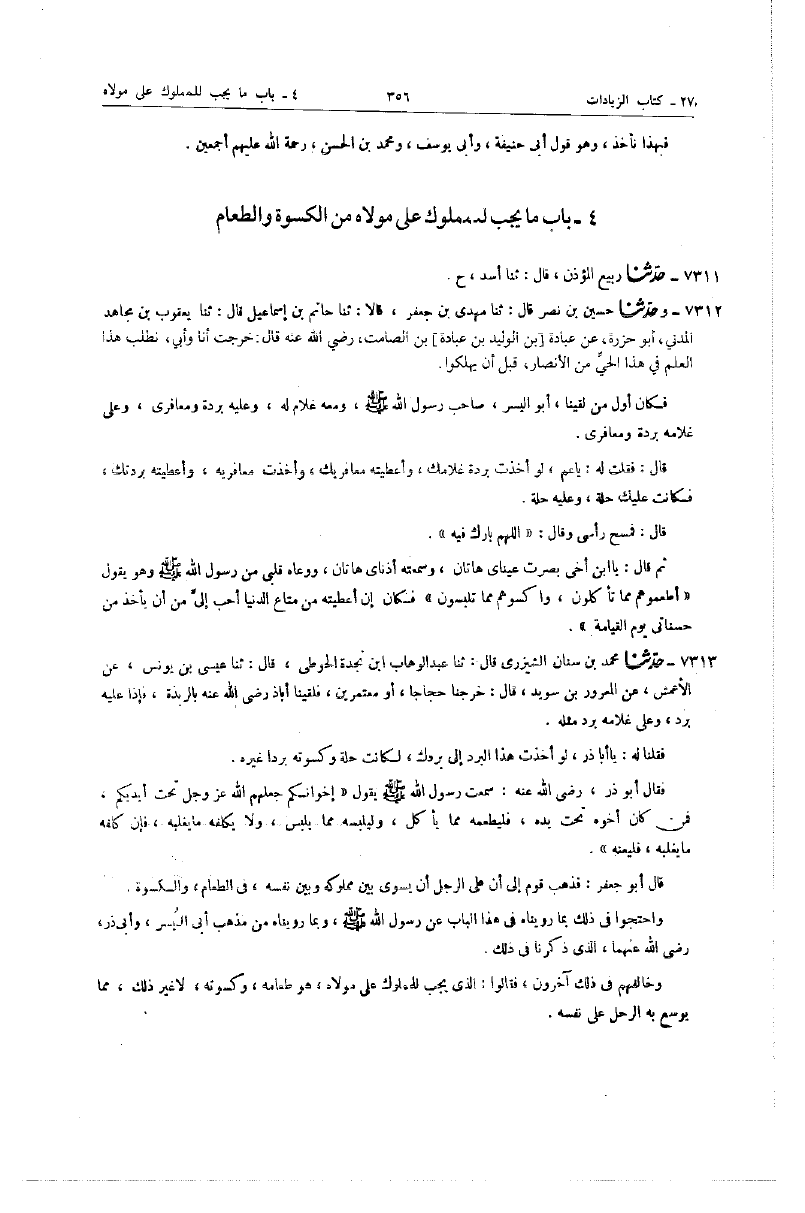 ٢٧ - كتاب الزيادات ٣٥٦ ٤ - باب ما يجب للمملوك على مولاه
فبهذا نأخذ ، وهو قول أبى حنيفة ، وأبى يوسف ، ومحمد بن الحسن ، رحمة الله عليهم أجمعين .
٤ - باب ما يجب للمملوك على مولاه من الكسوة والطعام
٧٣١١ - حدثنا ربيع المؤذن ، قال : ثنا أسد ، ح .
٧٣١٢ - وحدثنا حسين بن نصر قال : ثنا مهدى بن جعفر ، قالا : ثنا حاتم بن إسماعيل قال : ثنا يعقوب بن مجاهد
المدني، أبو حزرة، عن عبادة [بن الوليد بن عبادة] بن الصامت، رضي الله عنه قال: خرجت أنا وأبي، نطلب هذا
العلم في هذا الحيِّ من الأنصار، قبل أن يهلكوا.
فكان أول من لقينا ، أبو اليسر ، صاحب رسول الله ﷺ ، ومعه غلام له ، وعليه بردة ومعافرى ، وعلى
غلامه بردة ومعافرى .
قال : فقلت له : ياعم ، لو أخذت بردة غلامك ، وأعطيته معافريك ، وأخذت معافريه ، وأعطيته بردتك ،
فكانت عليك حلة ، وعليه حلة .
قال : فمسح رأسى وقال : « اللهم بارك فيه » .
ثم قال : ياابن أخى بصرت عيناى هاتان ، وسمعته أذناى هاتان ، ووعاه قلبى من رسول الله ﷺ وهو يقول
« أطعموهم مما تأكلون ، واكسوهم مما تلبسون » فكان إن أعطيته من متاع الدنيا أحب إلىَّ من أن يأخذ من
حسناتى يوم القيامة » .
٧٣١٣ - حدثنا محمد بن سنان الشيزرى قال : ثنا عبدالوهاب ابن نجدة الحوطى ، قال : ثنا عيسى بن يونس ، عن
الأعمش ، عن المعرور بن سويد ، قال : خرجنا حجاجا ، أو معتمرين ، فلقينا أباذر رضى الله عنه بالربذة ، فإذا عليه
برد ، وعلى غلامه برد مثله .
فقلنا له : ياأبا ذر ، لو أخذت هذا البرد إلى بردك ، لكانت حلة وكسوته بردا غيره .
فقال أبو ذر ، رضى الله عنه : سمعت رسول الله ﷺ يقول « إخوانكم جعلهم الله عز وجل تحت أيديكم ،
فمن كان أخوه تحت يده ، فليطعمه مما يأكل ، وليلبسه مما يلبس ، ولا يكلفه مايغلبه ، فإن كلفه
مايغلبه ، فليعنه » .
قال أبو جعفر : فذهب قوم إلى أن على الرجل أن يسوى بين مملوكه وبين نفسه ، فى الطعام ، والكسوة .
واحتجوا فى ذلك بما رويناه فى هذا الباب عن رسول الله ﷺ ، وبما رويناه من مذهب أبى اليُسر ، وأبى ذر ،
رضى الله عنهما ، الذى ذكرنا فى ذلك .
وخالفهم فى ذلك آخرون ، فقالوا : الذى يجب للمملوك على مولاه ، هو طعامه ، وكسوته ، لاغير ذلك ، مما
يوسع به الرجل على نفسه .